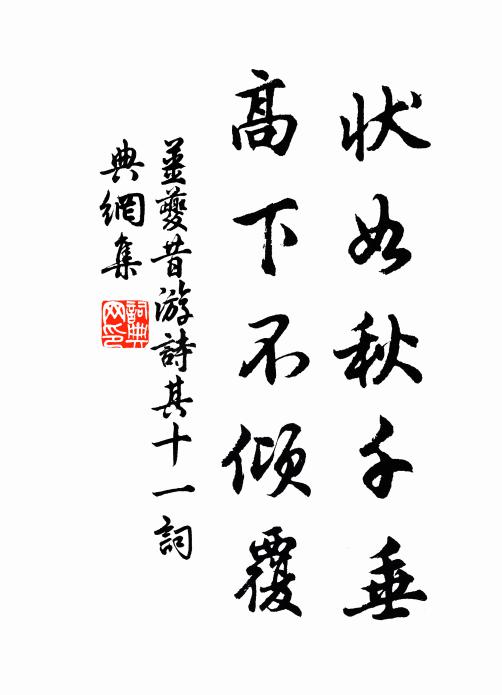 状如秋千垂
高下不倾覆
姜夔昔游詩其十一詞
典網集
詞典
网印